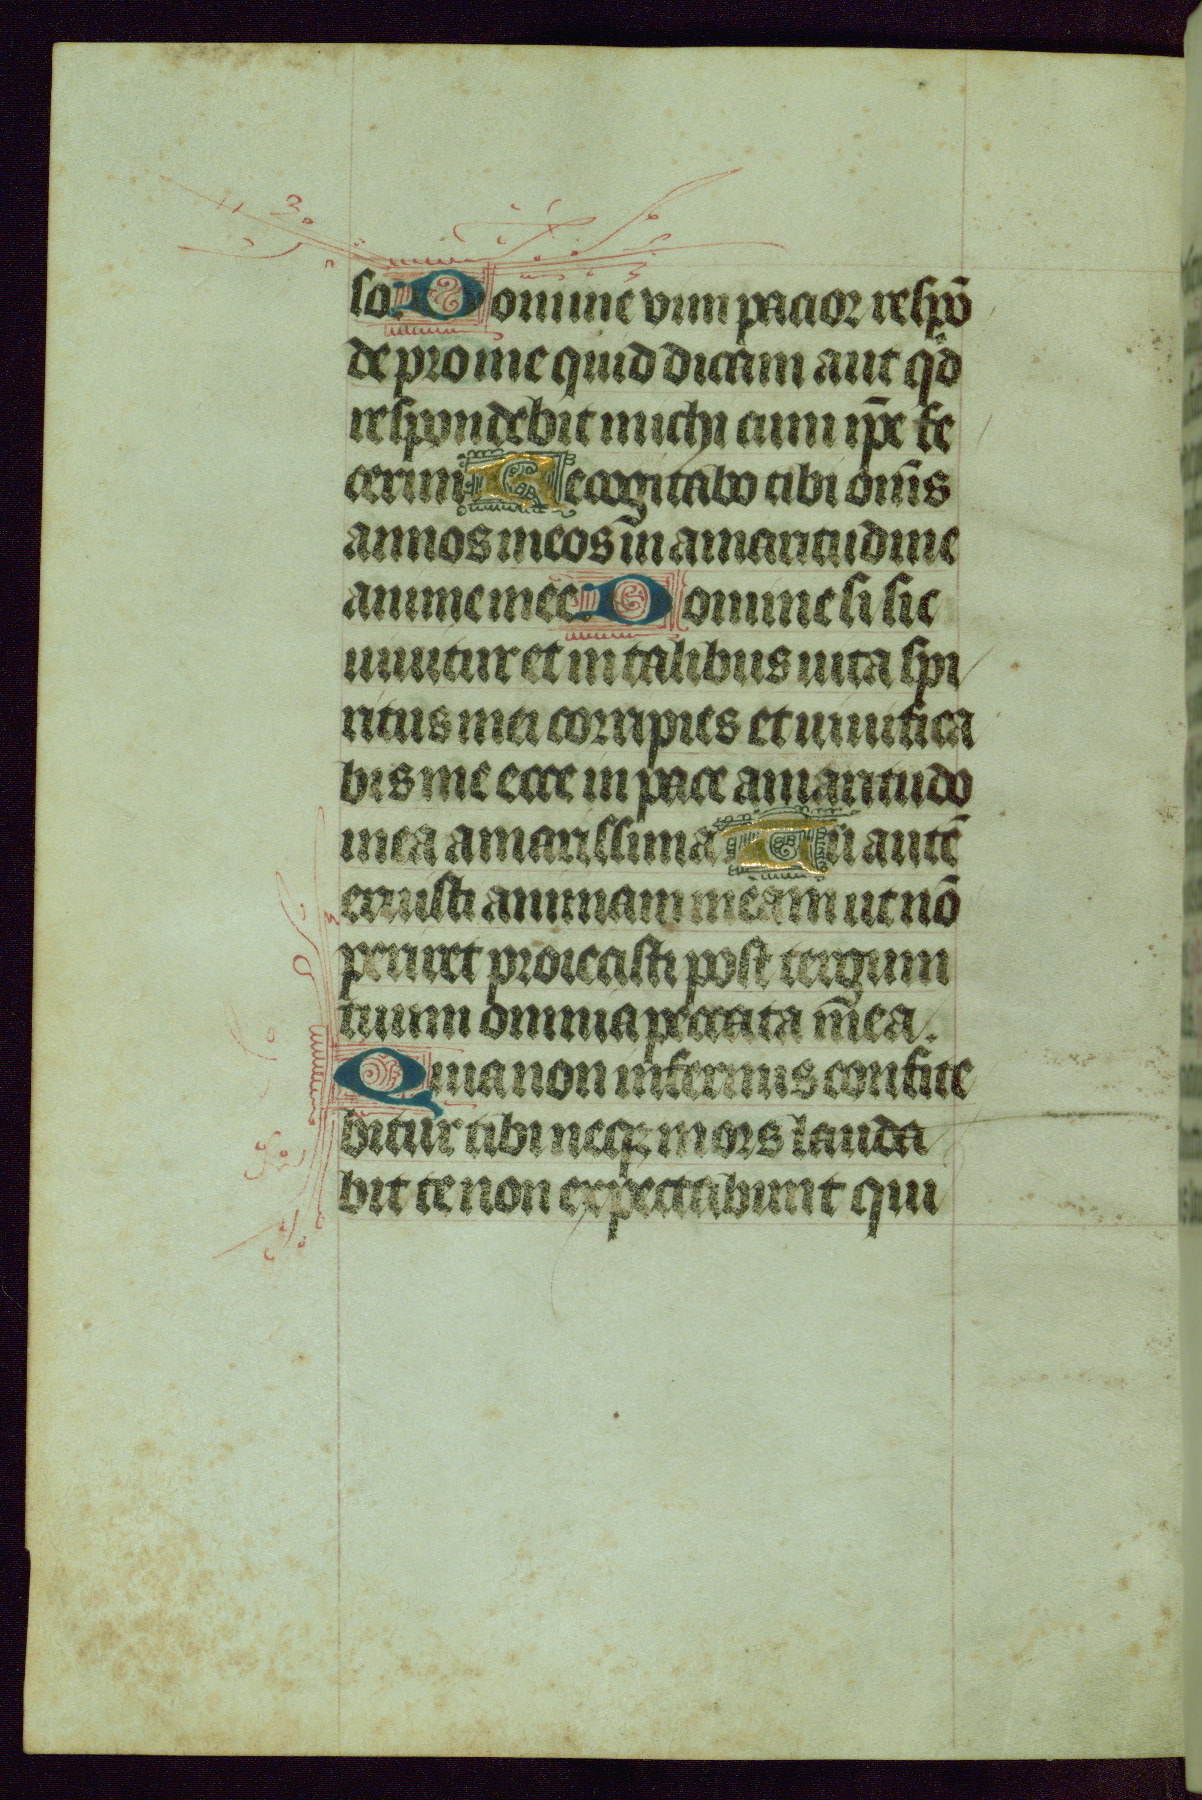 so. Domine vim pacior respō
de pro me quid dicam aut qd̄
respondebit michi cum ip̄e fe
cerim Recogitabo tibi om̄s
annos meos in amaritudine
anime mee. Domine si sic
uiuitur et in talibus uita spi
ritus mei corripies et uiuifica
bis me ecce in pace amaritudo
mea amarissima Tu autē
eruisti animam meam ut nō
periret proiecisti post tergum
tuum omnia peccata mea.
Quia non infernus confite
bitur tibi neqꝫ mors lauda
bit te non expectabunt qui